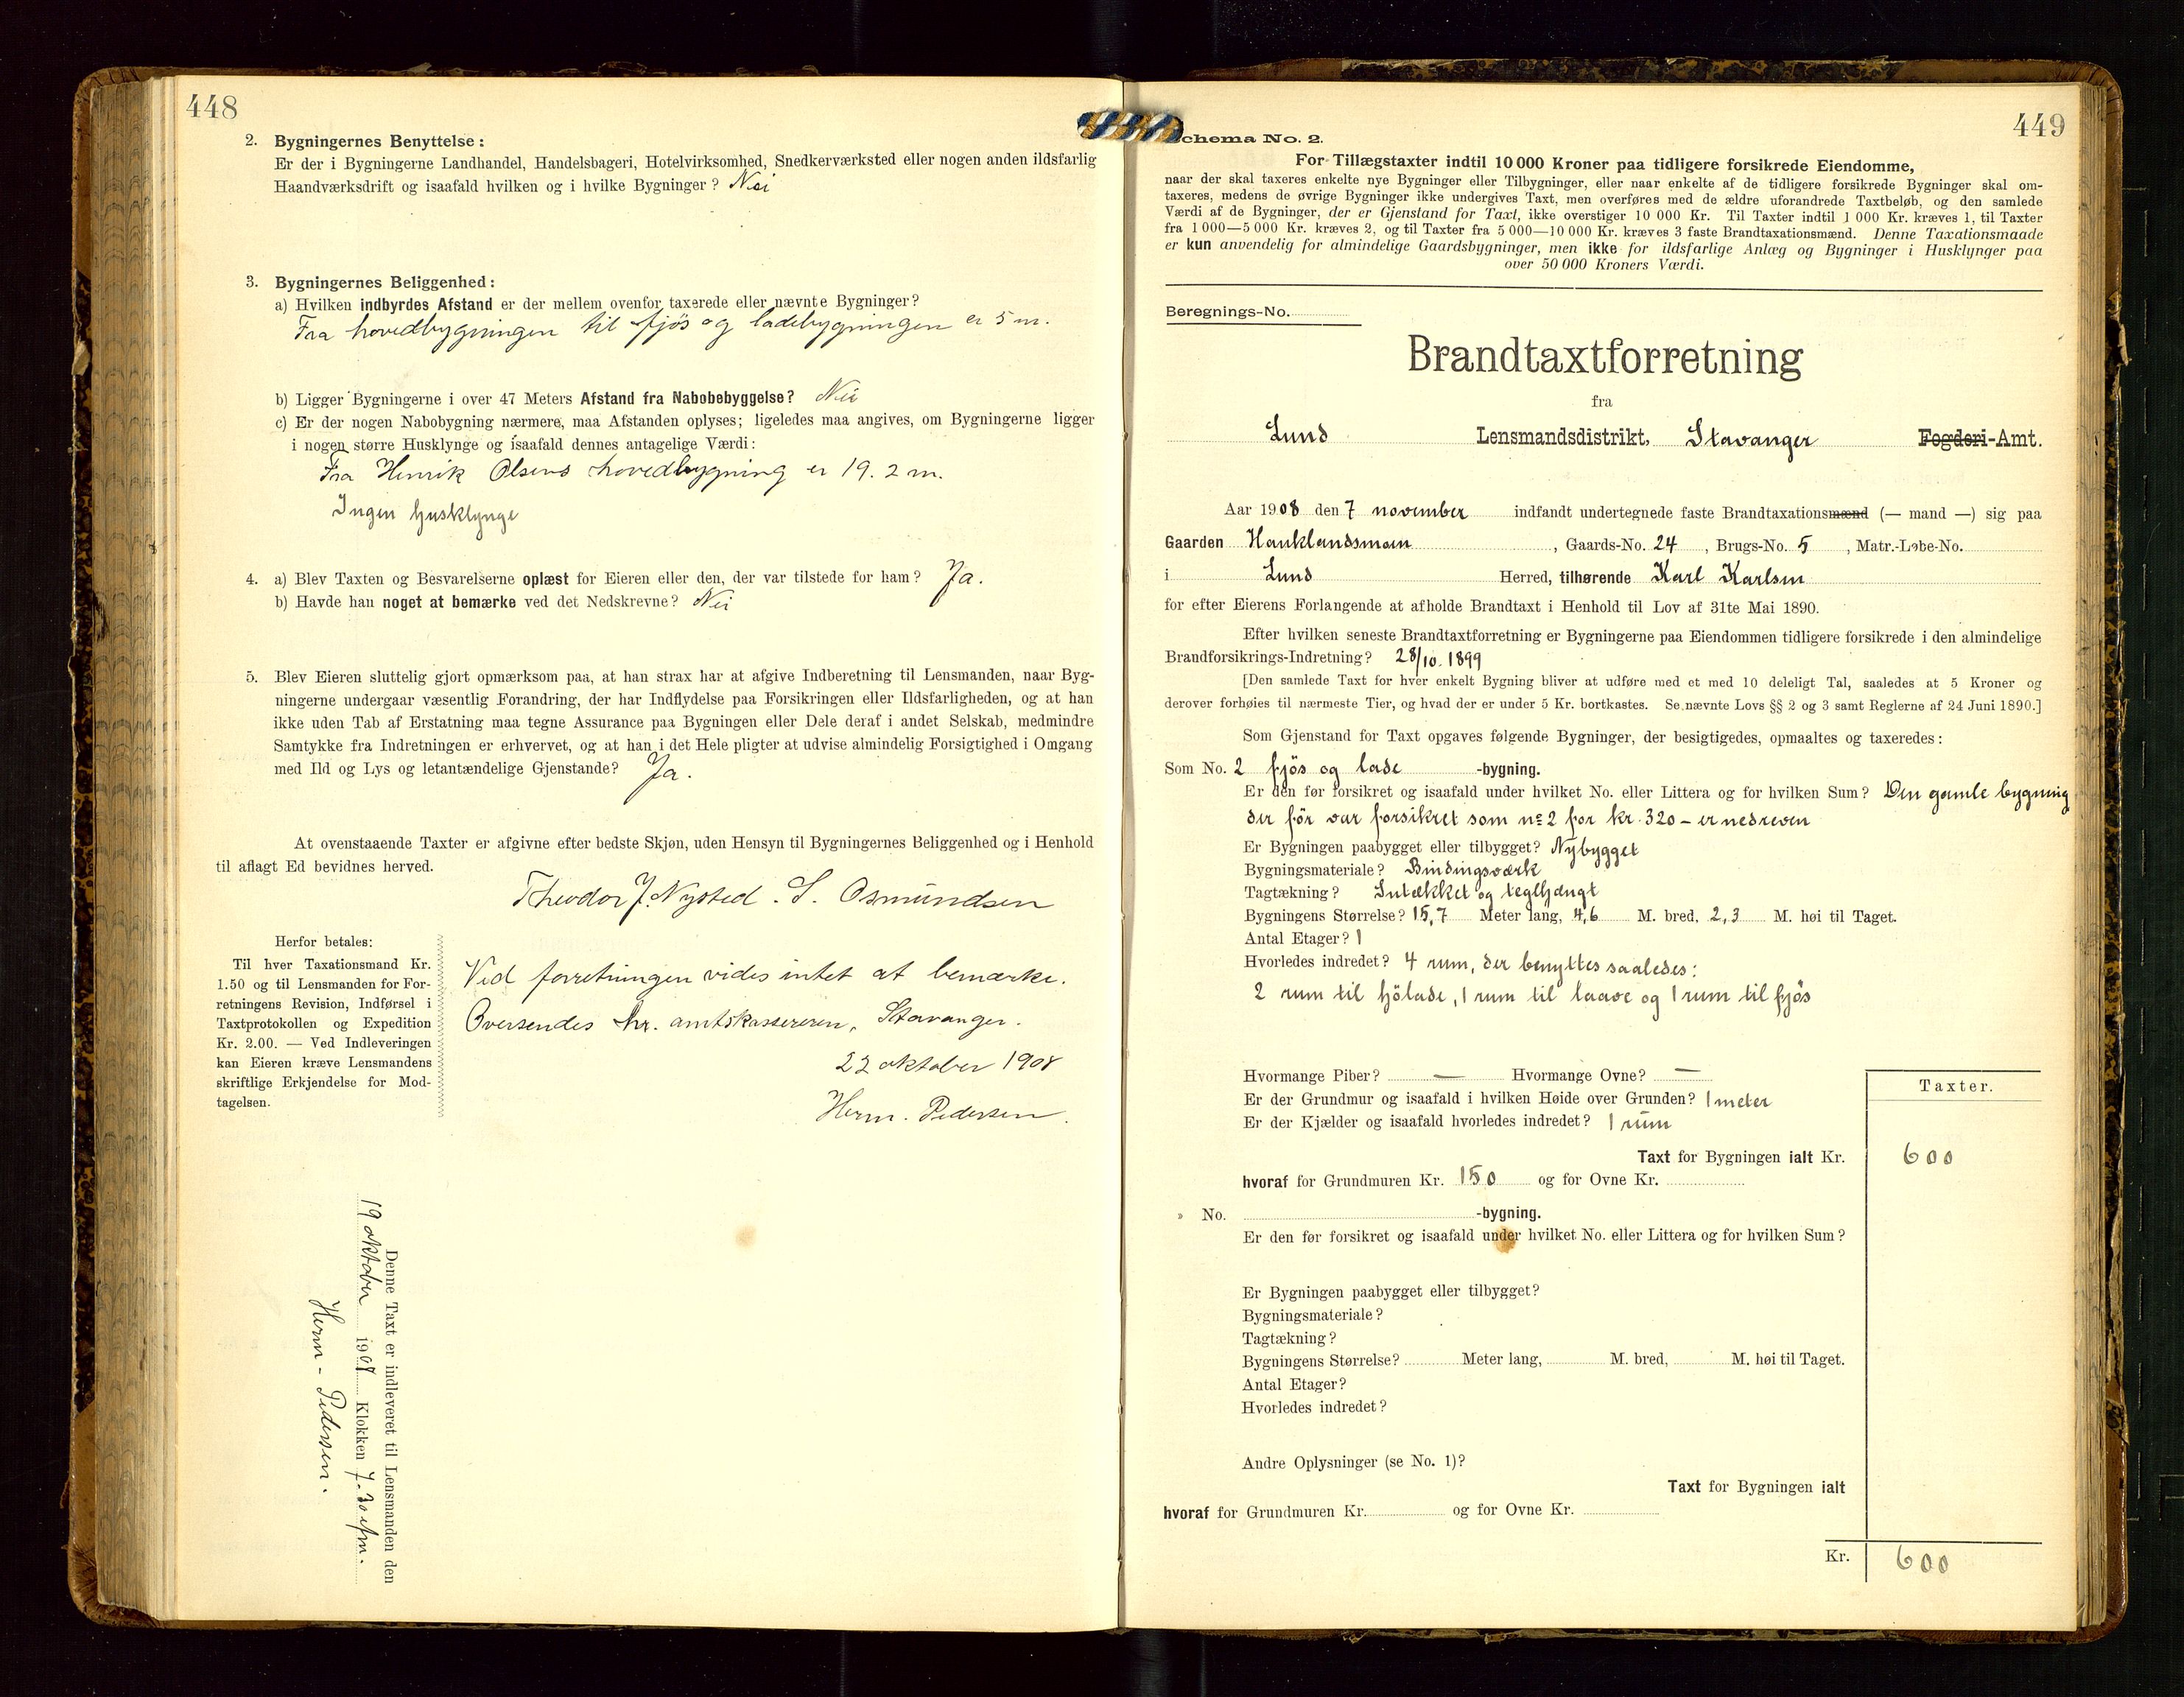 448
2. Bygningernes Benyttelse:
Er der i Bygningerne Landhandel, Handelsbageri, Hotelvirksomhed, Snedkerværksted eller nogen anden ildsfarlig
Haandværksdrift og isaafald hvilken og i hvilke Bygninger? Nei
3. Bygningernes Beliggenhed:
a) Hvilken indbyrdes Afstand er der mellem ovenfor taxerede eller nævnte Bygninger?
Fra hovedbygningen til fjös og ladebygningen er 5 m.
b) Ligger Bygningerne i over 47 Meters Afstand fra Nabobebyggelse? Nei
c) Er der nogen Nabobygning nærmere, maa Afstanden oplyses; ligeledes maa angives, om Bygningerne ligger
i nogen større Husklynge og isaafald dennes antagelige Værdi:
Fra Henrik Olsens hovedbygning er 19.2 m.
Ingen husklynge
4. a) Blev Taxten og Besvarelserne oplæst for Eieren eller den, der var tilstede for ham? Ja.
b) Havde han noget at bemærke ved det Nedskrevne? Nei
5. Blev Eieren sluttelig gjort opmærksom paa, at han strax har at afgive Indberetning til Lensmanden, naar Byg-
ningerne undergaar væsentlig Forandring, der har Indflydelse paa Forsikringen eller Ildsfarligheden, og at han
ikke uden Tab af Erstatning maa tegne Assurance paa Bygningen eller Dele deraf i andet Selskab, medmindre
Samtykke fra Indretningen er erhvervet, og at han i det Hele pligter at udvise almindelig Forsigtighed i Omgang
med Ild og Lys og letantændelige Gjenstande? Ja.
At ovenstaaende Taxter er afgivne efter bedste Skjøn, uden Hensyn til Bygningernes Beliggenhed og i Henhold
til aflagt Ed bevidnes herved.
Theodor J. Nysted. S. Osmundsen
Herfor betales:
Til hver Taxationsmand Kr.
1.50 og til Lensmanden for For-
retningens Revision, Indførsel i
Taxtprotokollen og Expedition
Kr. 2.00. — Ved Indleveringen
kan Eieren kræve Lensmandens
skriftlige Erkjendelse for Mod-
tagelsen.
Ved forretningen vides intet at bemærke.
Oversendes hr. amtskassereren, Stavanger.
22 oktober 1908
Herm. Pedersen.
Denne Taxt er indleveret til Lensmanden den
19 oktober 1908 Klokken 7.30 efm.
Herm. Pedersen.
449
Schema No. 2.
For Tillægstaxter indtil 10 000 Kroner paa tidligere forsikrede Eiendomme,
naar der skal taxeres enkelte nye Bygninger eller Tilbygninger, eller naar enkelte af de tidligere forsikrede Bygninger skal om-
taxeres, medens de øvrige Bygninger ikke undergives Taxt, men overføres med de ældre uforandrede Taxtbeløb, og den samlede
Værdi af de Bygninger, der er Gjenstand for Taxt, ikke overstiger 10 000 Kr. Til Taxter indtil 1 000 Kr. kræves 1, til Taxter
fra 1 000—5 000 Kr. kræves 2, og til Taxter fra 5 000—10 000 Kr. kræves 3 faste Brandtaxationsmænd. Denne Taxationsmaade
er kun anvendelig for almindelige Gaardsbygninger, men ikke for ildsfarlige Anlæg og Bygninger i Husklynger paa
over 50 000 Kroners Værdi.
Beregnings-No.
Brandtaxtforretning
fra
Lund Lensmandsdistrikt, Stavanger Fogderi-Amt.
Aar 1908 den 7 november indfandt undertegnede faste Brandtaxationsmænd (— mand —) sig paa
Gaarden Hauklandsmoen, Gaards-No. 24, Brugs-No. 5, Matr.-Løbe-No.
i Lund Herred, tilhørende Karl Karlsen
for efter Eierens Forlangende at afholde Brandtaxt i Henhold til Lov af 31te Mai 1890.
Efter hvilken seneste Brandtaxtforretning er Bygningerne paa Eiendommen tidligere forsikrede i den almindelige
Brandforsikrings-Indretning? 28/10. 1899
[Den samlede Taxt for hver enkelt Bygning bliver at udføre med et med 10 deleligt Tal, saaledes at 5 Kroner og
derover forhøies til nærmeste Tier, og hvad der er under 5 Kr. bortkastes. Se nævnte Lovs §§ 2 og 3 samt Reglerne af 24 Juni 1890.]
Som Gjenstand for Taxt opgaves følgende Bygninger, der besigtigedes, opmaaltes og taxeredes:
Som No. 2 fjös og lade -bygning.
Er den før forsikret og isaafald under hvilket No. eller Littera og for hvilken Sum? Den gamle bygning
der för var forsikret som no 2 for kr. 320 – er nedreven
Er Bygningen paabygget eller tilbygget? Nybygget
Bygningsmateriale? Bindingsværk
Tagtækning? Sutækket og teglhængt
Bygningens Størrelse? 15,7 Meter lang, 4,6 M. bred, 2,3 M. høi til Taget.
Antal Etager? 1
Hvorledes indredet? 4 rum, der benyttes saaledes:
2 rum til hölade, 1 rum til laave og 1 rum til fjös
Hvormange Piber? — Hvormange Ovne? —
Er der Grundmur og isaafald i hvilken Høide over Grunden? 1 meter
Er der Kjælder og isaafald hvorledes indredet? 1 rum
Taxter.
Taxt for Bygningen ialt Kr. 600
hvoraf for Grundmuren Kr. 150 og for Ovne Kr.
» No. -bygning.
Er den før forsikret og isaafald under hvilket No. eller Littera og for hvilken Sum?
Er Bygningen paabygget eller tilbygget?
Bygningsmateriale?
Tagtækning?
Bygningens Størrelse? Meter lang, M. bred, M. høi til Taget.
Antal Etager?
Hvorledes indredet?
Andre Oplysninger (se No. 1)?
Taxt for Bygningen ialt
hvoraf for Grundmuren Kr. og for Ovne Kr.
Kr. 600